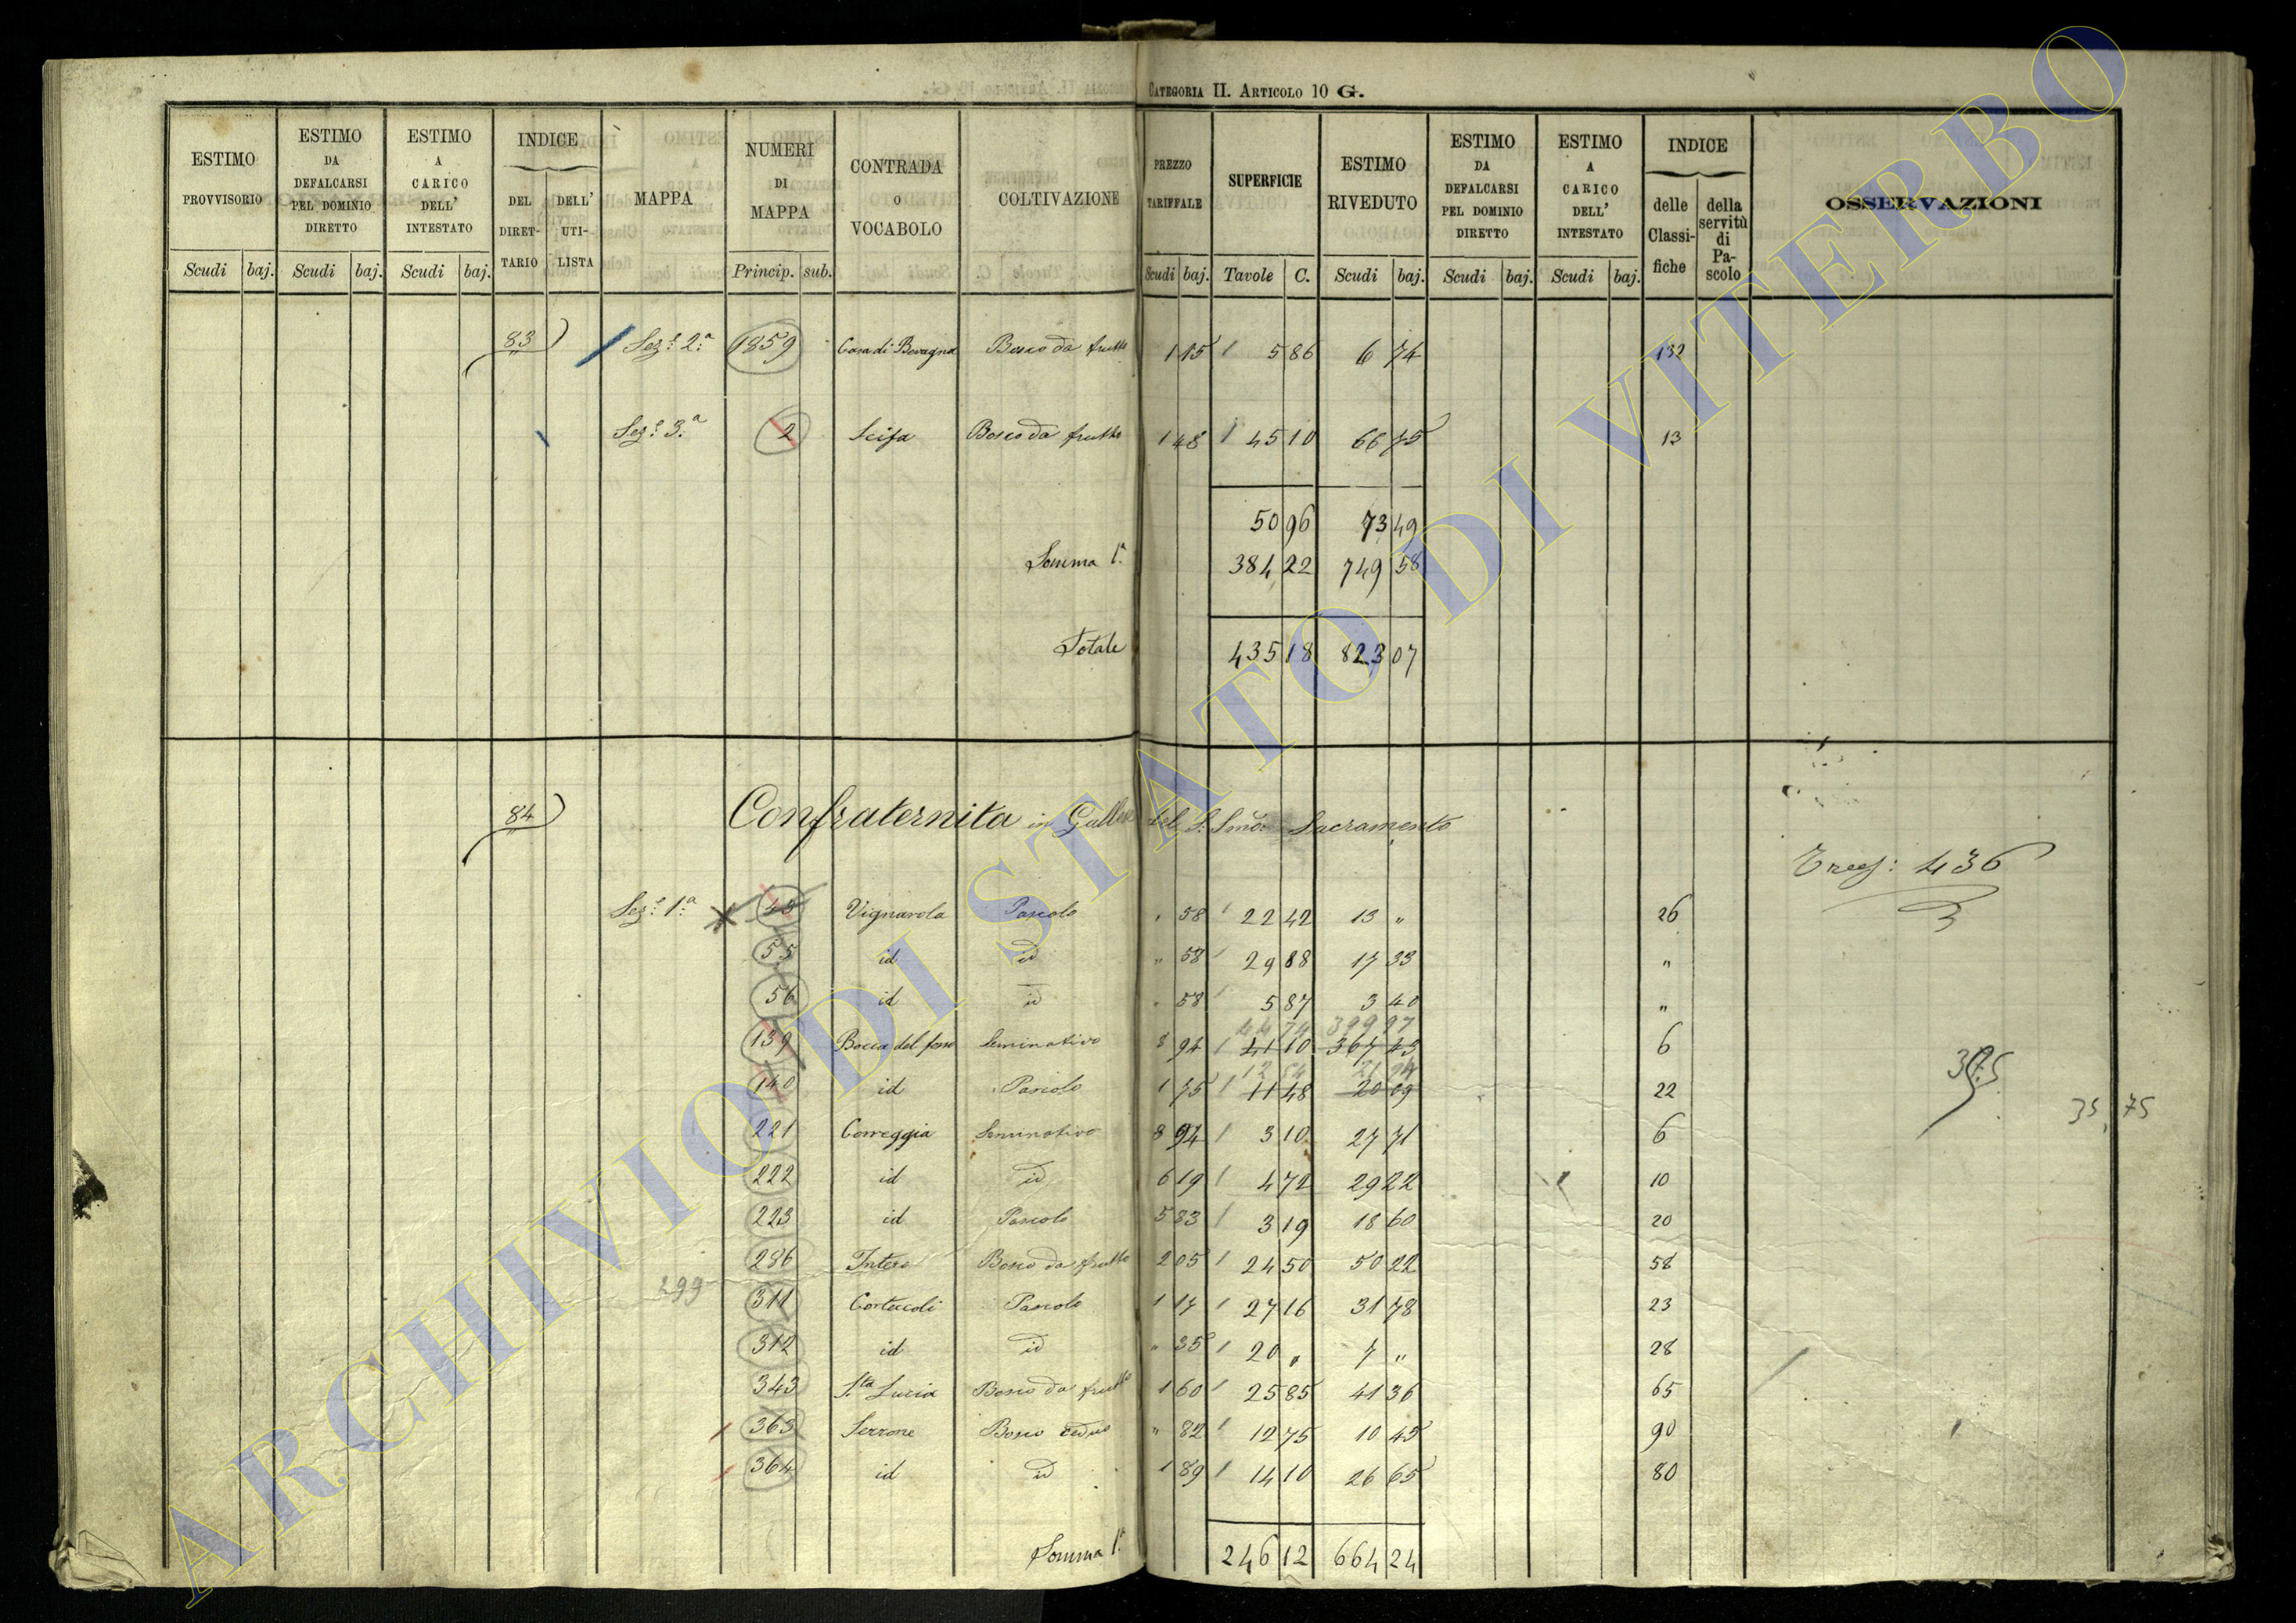 CATEGORIA II. ARTICOLO 10 G.
ESTIMO PROVVISORIO Scudi baj.
ESTIMO DA DEFALCARSI PEL DOMINIO DIRETTO Scudi baj.
ESTIMO A CARICO DELL' INTESTATO Scudi baj.
INDICE DEL DIRETTARIO DELL' UTILISTA
MAPPA
NUMERI DI MAPPA Princip. sub.
CONTRADA o VOCABOLO
COLTIVAZIONE
PREZZO TARIFFALE Scudi baj.
SUPERFICIE Tavole C.
ESTIMO RIVEDUTO Scudi baj.
ESTIMO DA DEFALCARSI PEL DOMINIO DIRETTO Scudi baj.
ESTIMO A CARICO DELL' INTESTATO Scudi baj.
INDICE delle Classifiche della servitù di Pascolo
OSSERVAZIONI
83 Sez.e 2.a 1859 Casa di Bevagna Bosco da frutto 1 15 5 86 6 74 132
Sez.e 3.a 2 Scifa Bosco da frutto 1 48 45 10 66 75 13
50 96 73 49
Somma 1.a 384 22 749 58
Totale 435 18 823 07
84 Confraternita in Gallese del S. Smo: Sacramento
436
Sez.e 1.a 45 Vignarola Pascolo " 58 22 42 13 " 26
55 id id " 58 29 88 17 33 "
56 id id " 58 5 87 3 40 "
44 74 399 97
139 Bocca del fosso Seminativo 8 94 41 10 367 43 6
12 54
140 id Pascolo 1 75 11 48 20 09 22
35,75
221 Correggia Seminativo 8 94 3 10 27 71 6
222 id id 6 19 4 72 29 22 10
223 id Pascolo 5 83 3 19 18 60 20
286 Intese Bosco da frutto 2 05 24 50 50 22 58
299
311 Cortaccoli Pascolo 1 17 27 16 31 78 23
312 id id " 35 20 " 7 " 28
343 S.ta Lucia Bosco da frutto 1 60 25 85 41 36 65
363 Serrone Bosco ceduo " 82 12 75 10 45 90
364 id id 1 89 14 10 26 65 80
Somma 1.a 246 12 664 24
ARCHIVIO DI STATO DI VITERBO